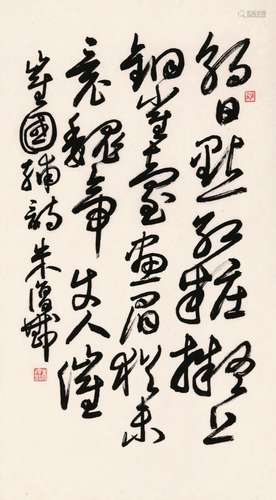 朝日點紅粧擬上
銅雀臺畫眉猶未
竟魏帝使人催
崔國輔詩 朱復戡